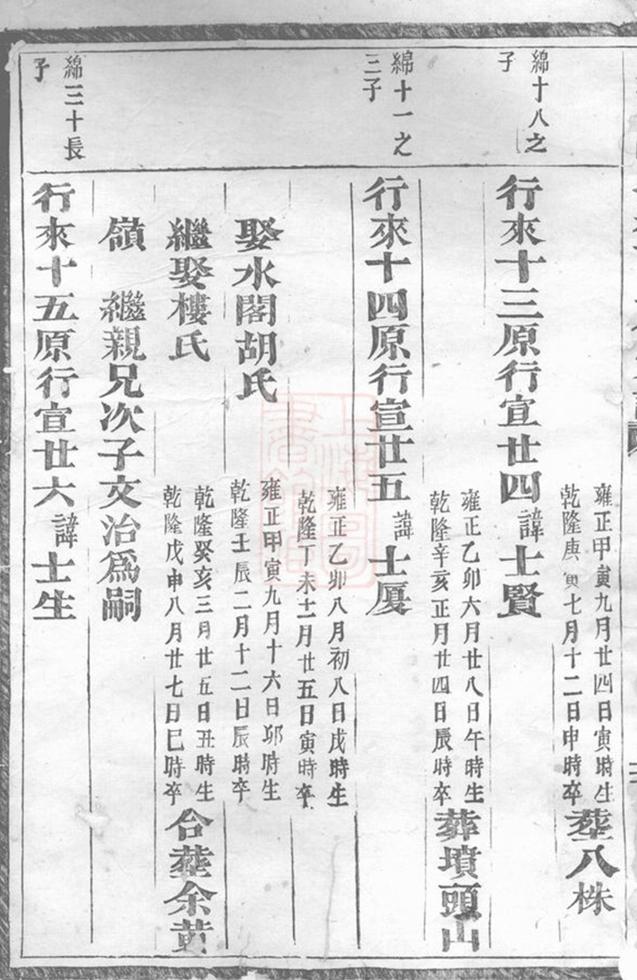 雍正甲寅九月廿四日寅時生
乾隆庚寅七月十二日申時卒
塟八株
綿十八之
子
行來十三原行宣廿四諱士賢
雍正乙卯六月廿八日午時生
乾隆辛亥正月廿四日辰時卒
葬墳頭山
綿十一之
三子
行來十四原行宣廿五諱士厦
雍正乙卯八月初八日戌時生
乾隆丁未十一月廿五日寅時卒
娶水閣胡氏
雍正甲寅九月十六日卯時生
乾隆壬辰二月十二日辰時卒
繼娶樓氏
乾隆癸亥三月廿五日丑時生
乾隆戊申八月廿七日巳時卒
合塟余黄
嶺 繼親兄次子文治爲嗣
綿三十長
子
行來十五原行宣廿六諱士生